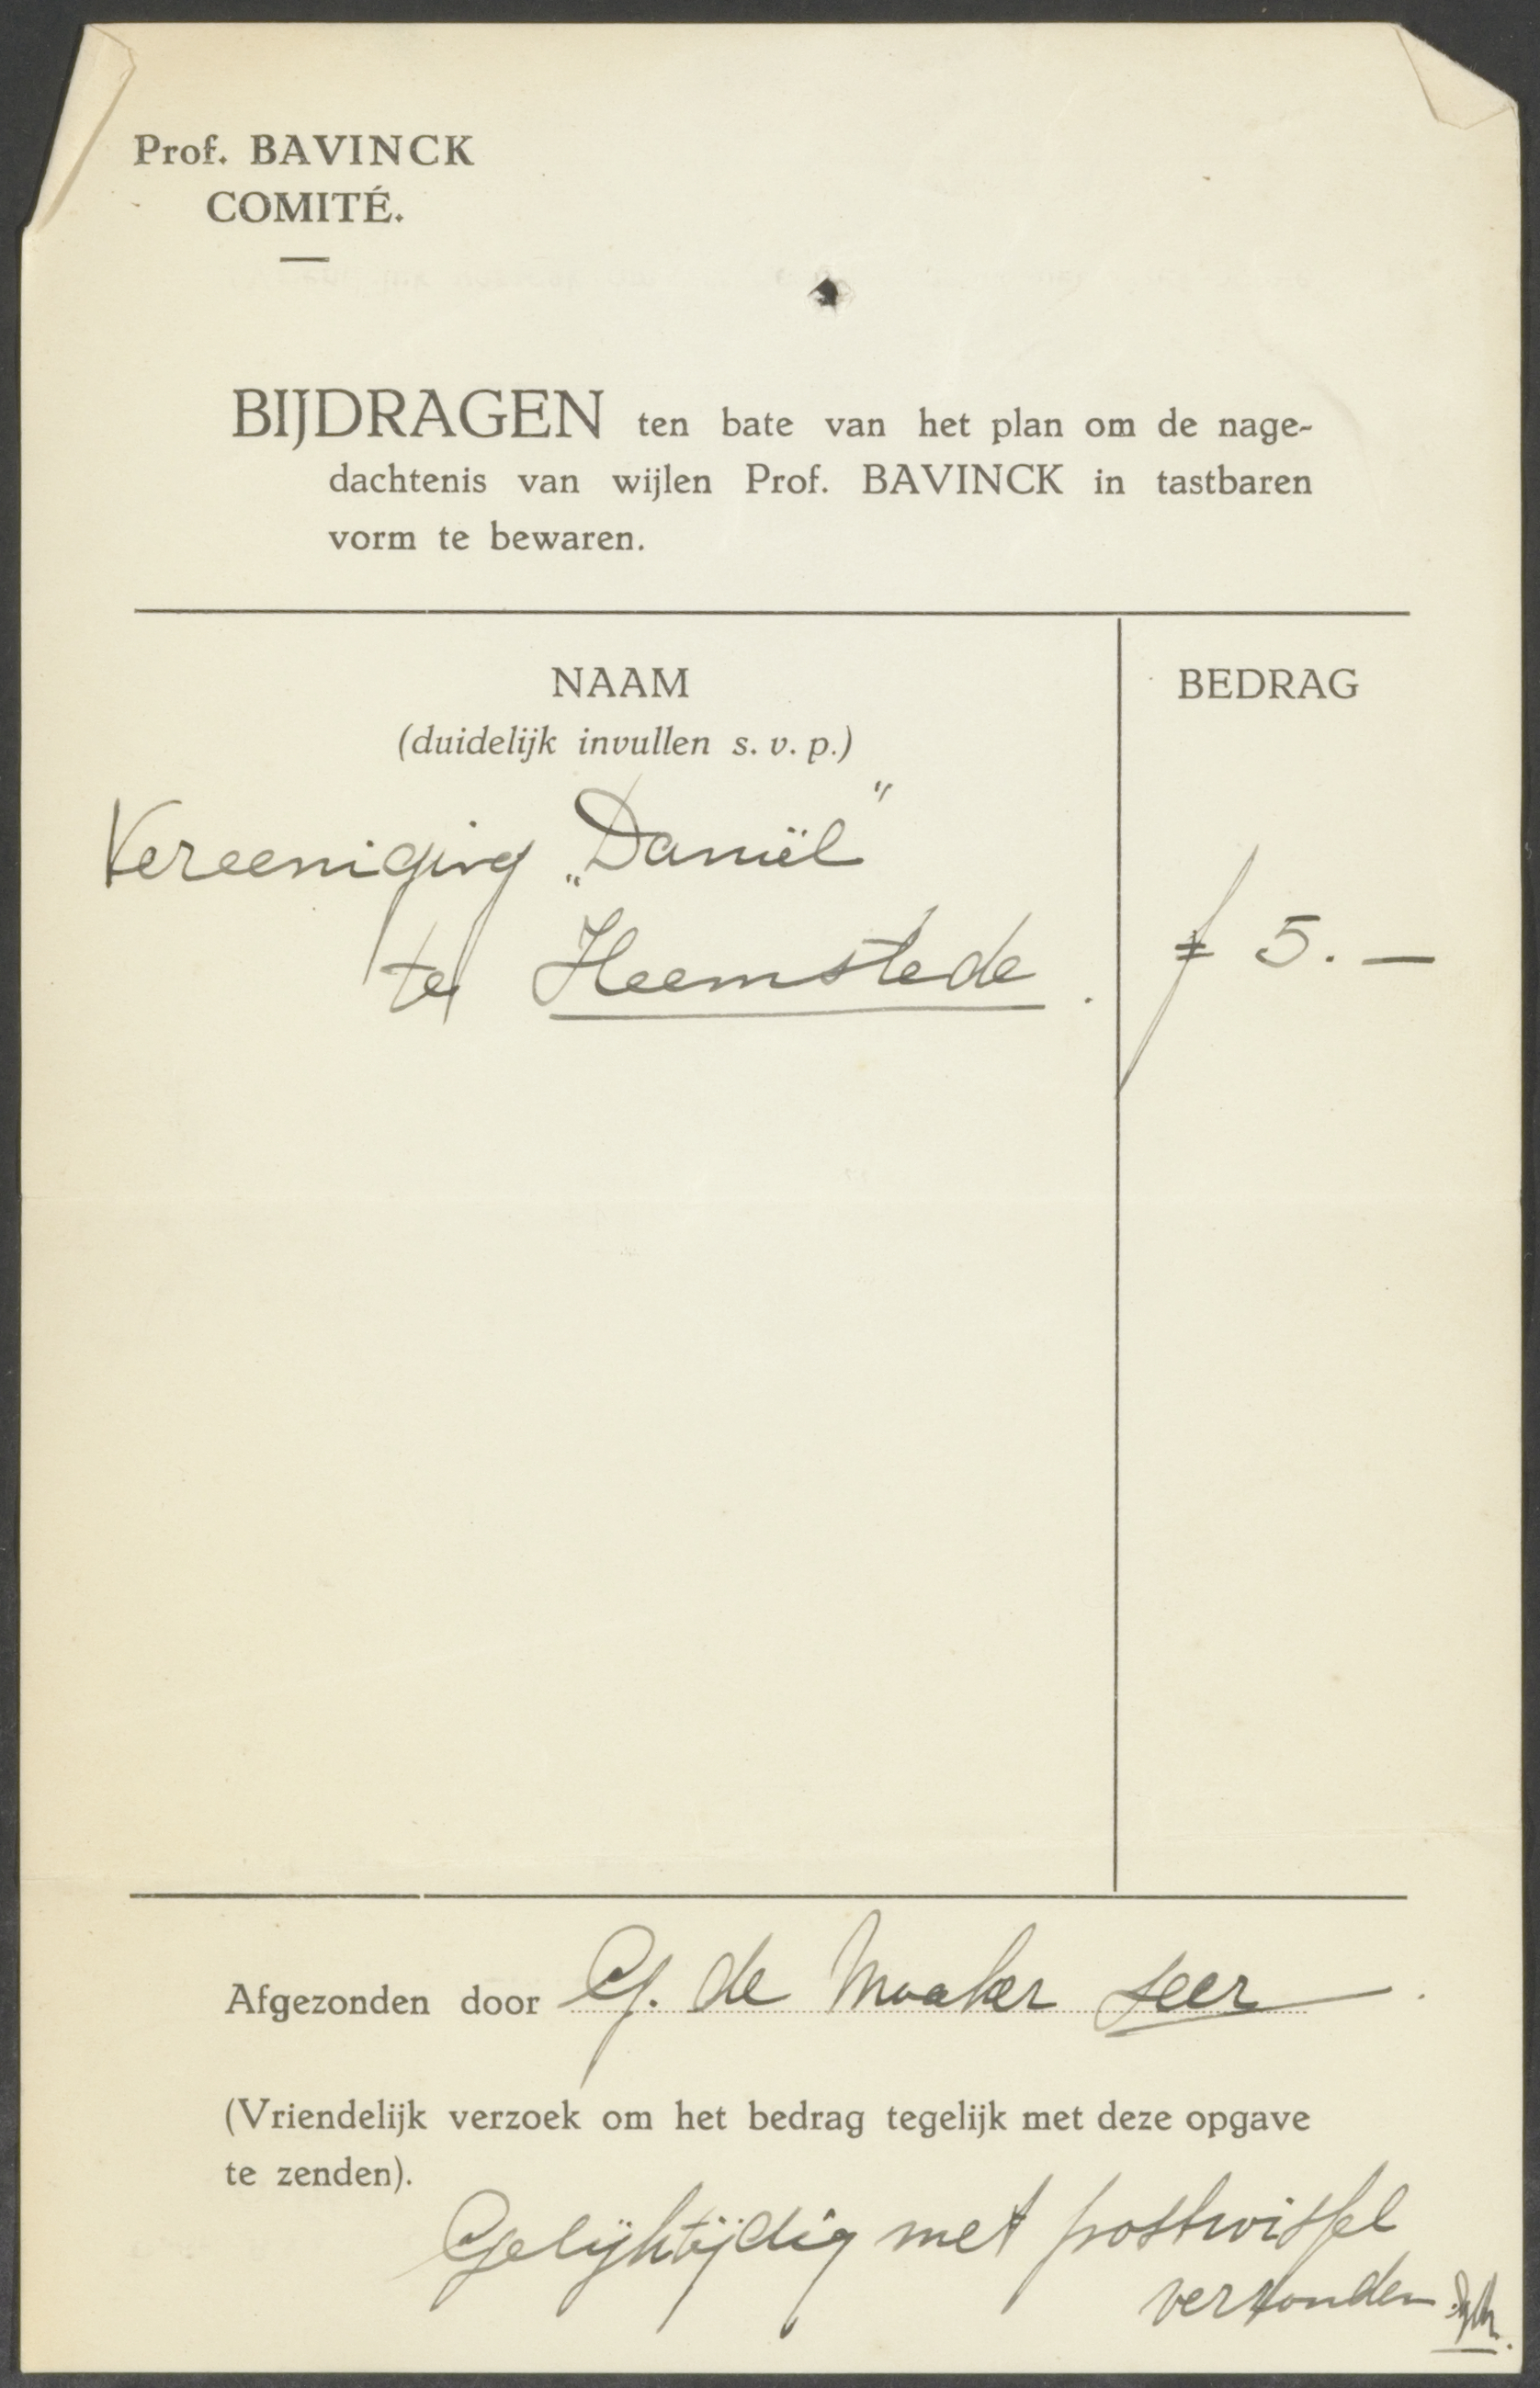 Prof. BAVINCK
COMITÉ.
BIJDRAGEN ten bate van het plan om de nage-
dachtenis van wijlen Prof. BAVINCK in tastbaren
vorm te bewaren.
NAAM
BEDRAG
(duidelijk invullen s. v. p.)
Vereeniging „Daniël"
te Heemstede.
ƒ 5.—
Afgezonden door G. de Maaker secr.
(Vriendelijk verzoek om het bedrag tegelijk met deze opgave
te zenden).
Gelijktijdig met postwissel
verzonden